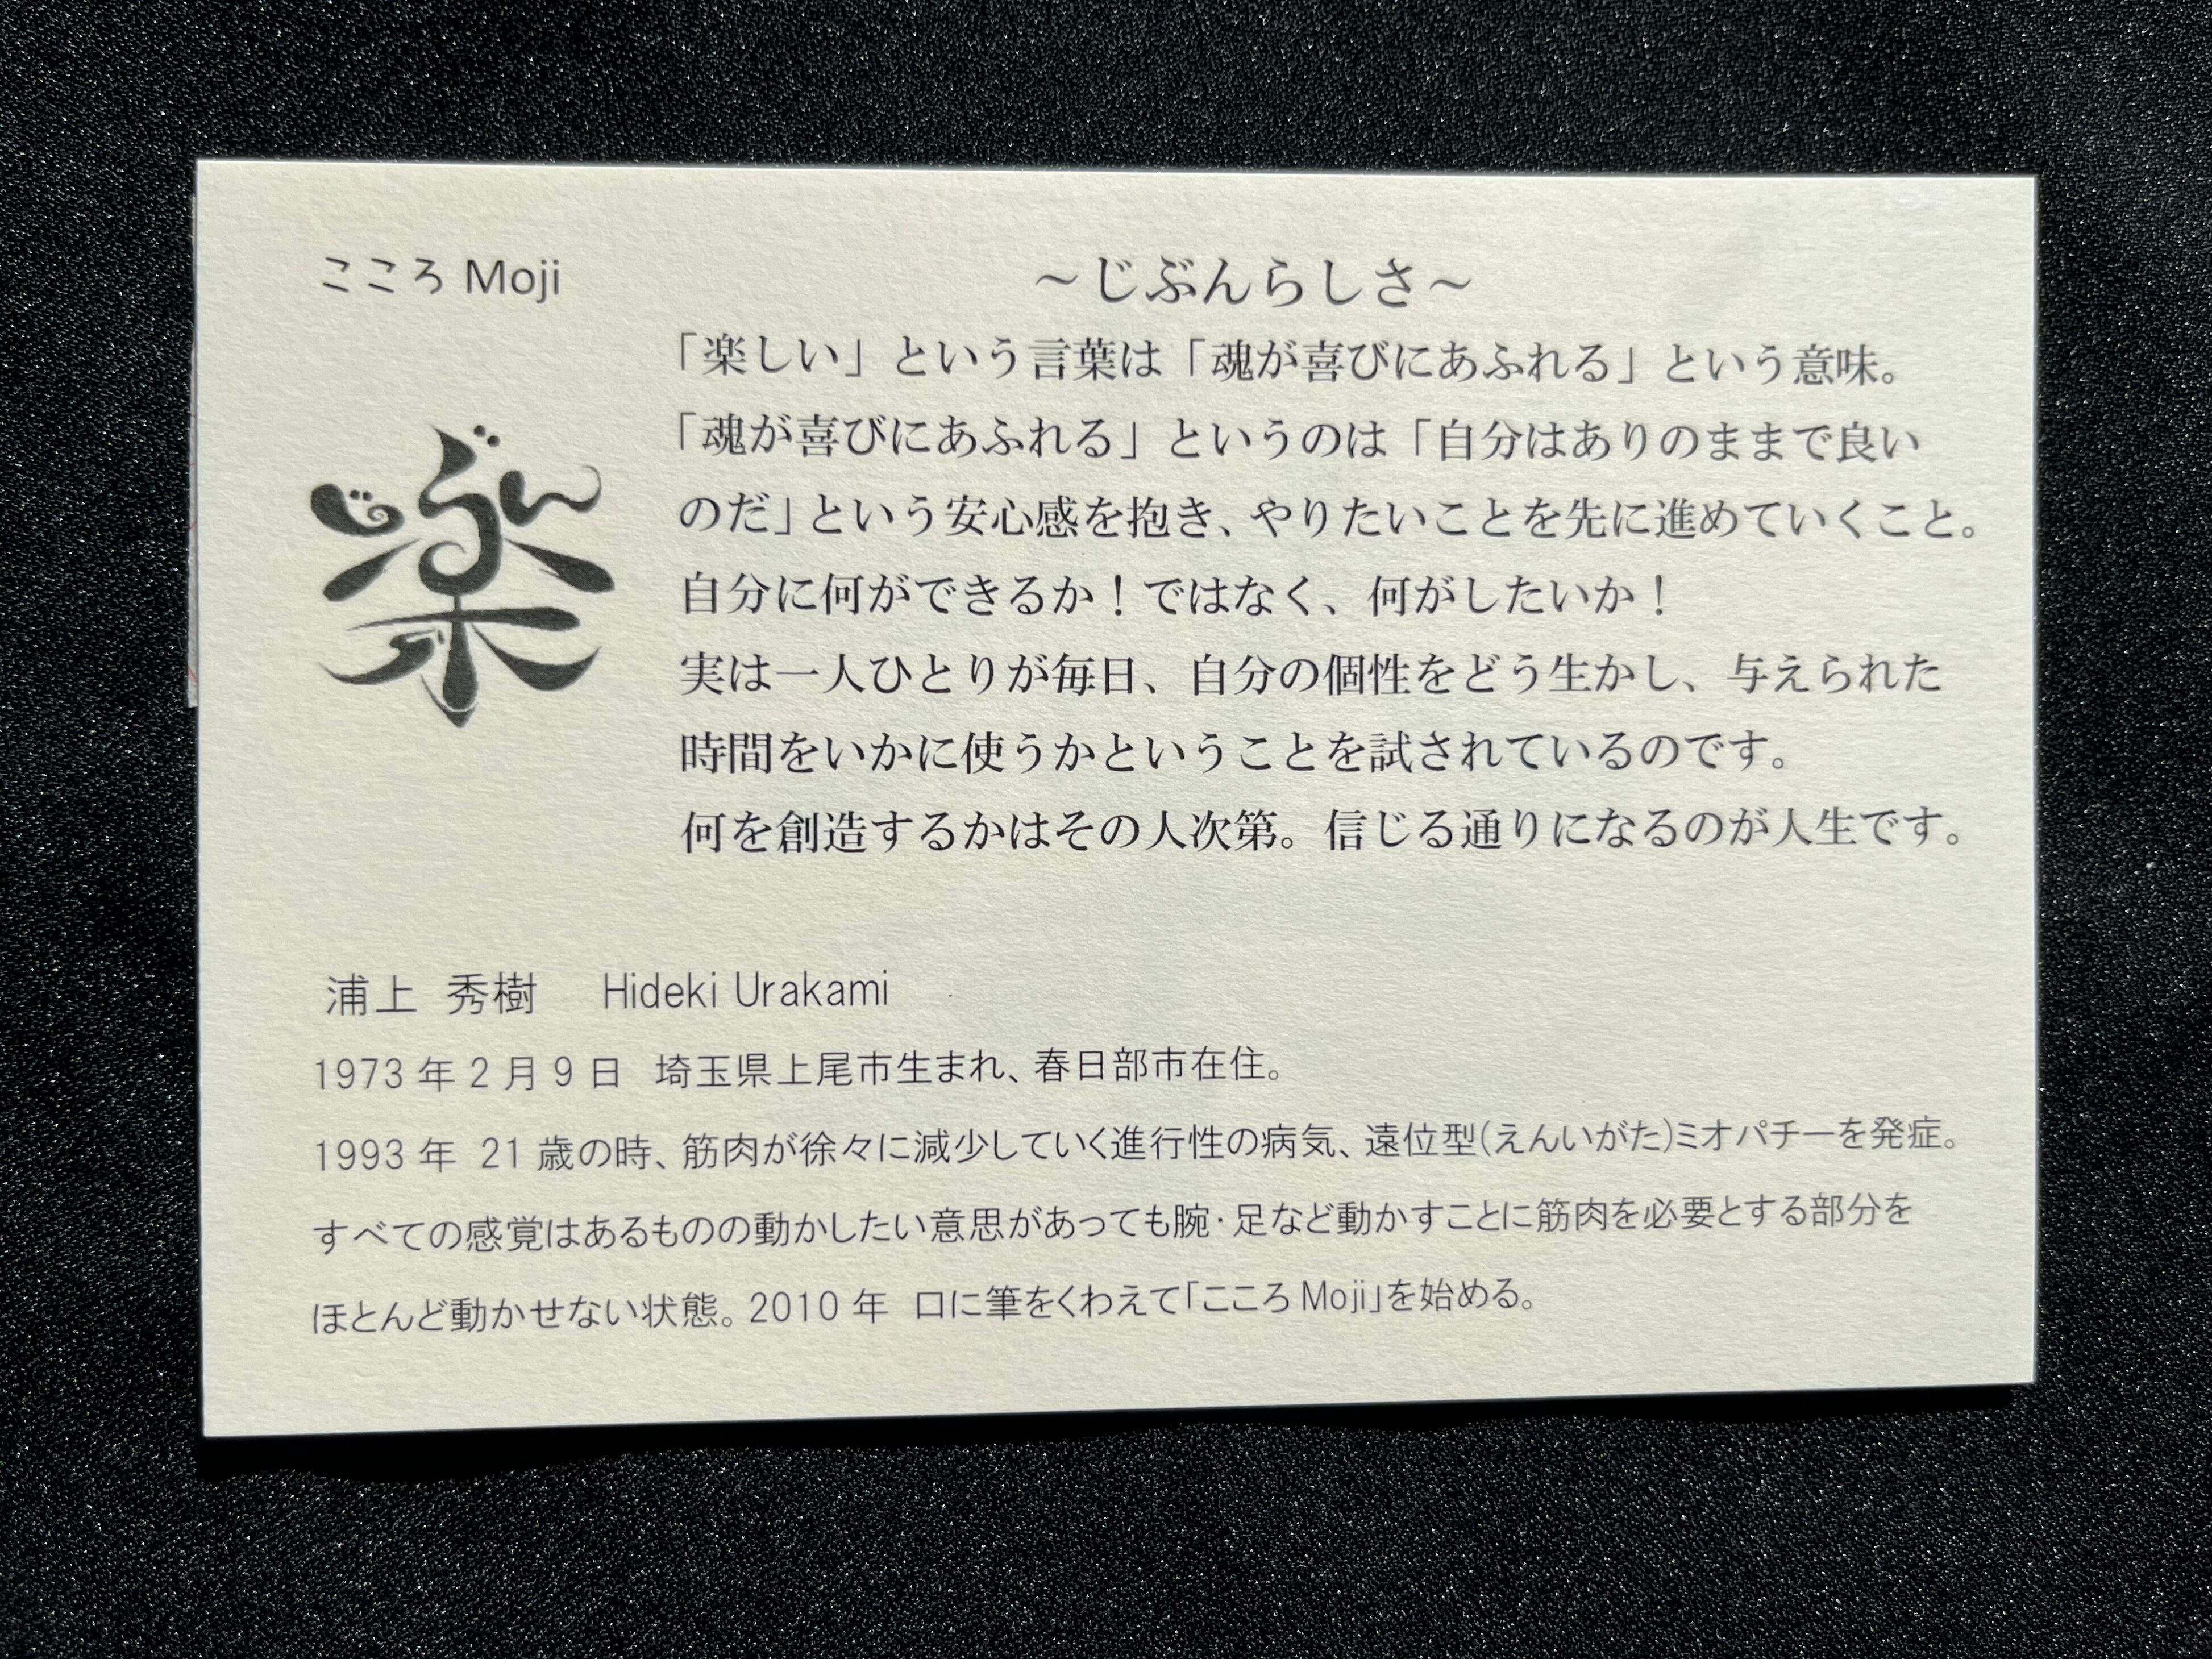 こころ Moji
～じぶんらしさ～
「楽しい」という言葉は「魂が喜びにあふれる」という意味。
「魂が喜びにあふれる」というのは「自分はありのままで良い
のだ」という安心感を抱き、やりたいことを先に進めていくこと。
自分に何ができるか！ではなく、何がしたいか！
実は一人ひとりが毎日、自分の個性をどう生かし、与えられた
時間をいかに使うかということを試されているのです。
何を創造するかはその人次第。信じる通りになるのが人生です。
楽
浦上 秀樹 Hideki Urakami
1973 年 2 月 9 日 埼玉県上尾市生まれ、春日部市在住。
1993 年 21 歳の時、筋肉が徐々に減少していく進行性の病気、遠位型(えんいがた)ミオパチーを発症。
すべての感覚はあるものの動かしたい意思があっても腕・足など動かすことに筋肉を必要とする部分を
ほとんど動かせない状態。2010 年 口に筆をくわえて「こころ Moji」を始める。